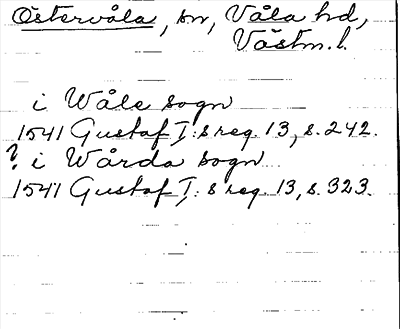 Östervåla, sn, Våla hd,
Västm. l.
i Wåle sogn
1541 Gustaf I:s reg. 13, s. 242.
? i Wårda sogn
1541 Gustaf I:s reg. 13, s. 323.